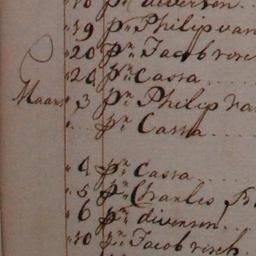 " 10 pr diversen.
" 19 pr Philip van
" 20 pr Jacob risch
" 24 pr Cassa
Maart " 3 pr Philip va
" pr Cassa
" 4 pr Cassa
" 5 pr Charles
" 6 pr diversen
" 10 pr Jacob risch.